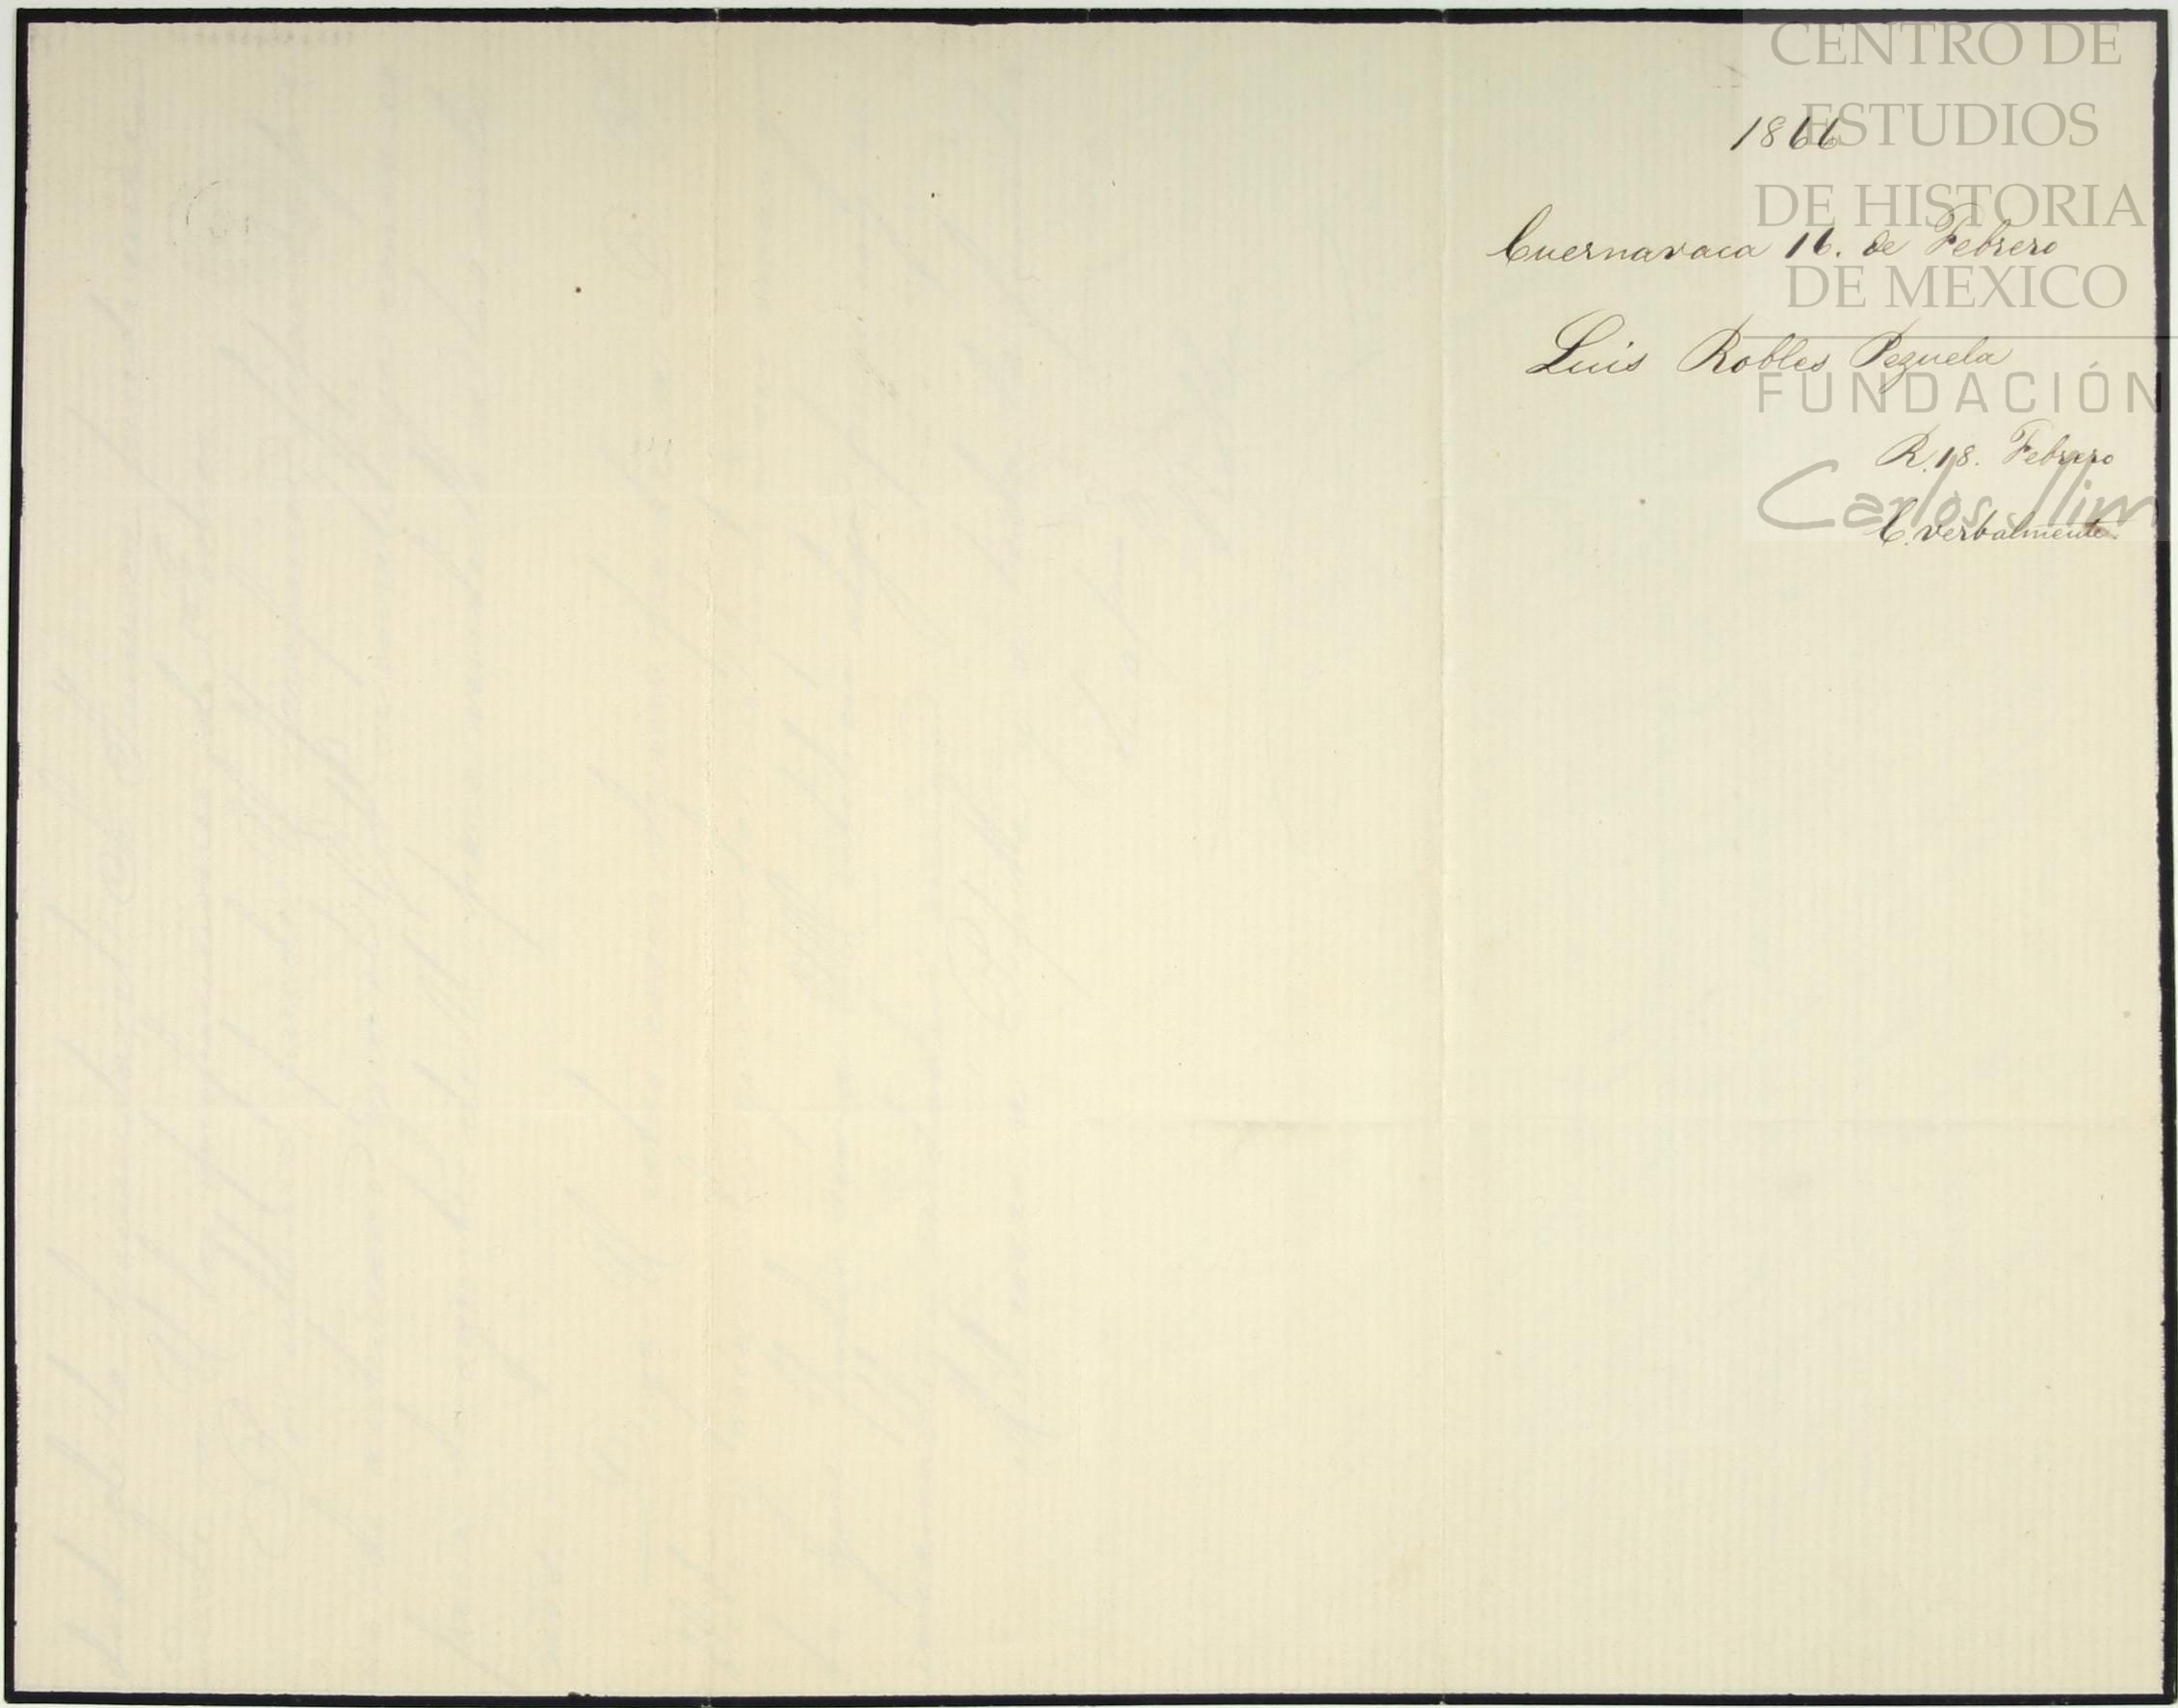 CENTRO DE
ESTUDIOS
DE HISTORIA
DE MEXICO
FUNDACIÓN
Carlos Slim
1866
Cuernavaca 16. de Febrero
Luis Robles Pezuela
R. 18. Febrero
C. verbalmente